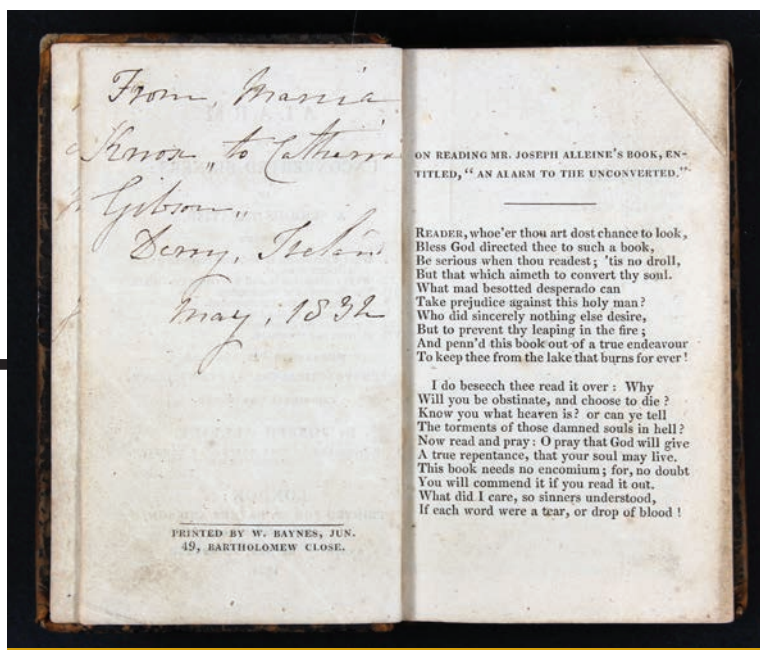 From, Maria
Knox „ to Catherin
Gibson „
Derry, Irelan
May, 1832
PRINTED BY W. BAYNES, JUN.
49, BARTHOLOMEW CLOSE.
ON READING MR. JOSEPH ALLEINE'S BOOK, EN-
TITLED, “ AN ALARM TO THE UNCONVERTED.”
READER, whoe'er thou art dost chance to look,
Bless God directed thee to such a book,
Be serious when thou readest; 'tis no droll,
But that which aimeth to convert thy soul.
What mad besotted desperado can
Take prejudice against this holy man?
Who did sincerely nothing else desire,
But to prevent thy leaping in the fire;
And penn'd this book out of a true endeavour
To keep thee from the lake that burns for ever!
I do beseech thee read it over: Why
Will you be obstinate, and choose to die?
Know you what heaven is? or can ye tell
The torments of those damned souls in hell?
Now read and pray: O pray that God will give
A true repentance, that your soul may live.
This book needs no encomium; for, no doubt
You will commend it if you read it out.
What did I care, so sinners understood,
If each word were a tear, or drop of blood!